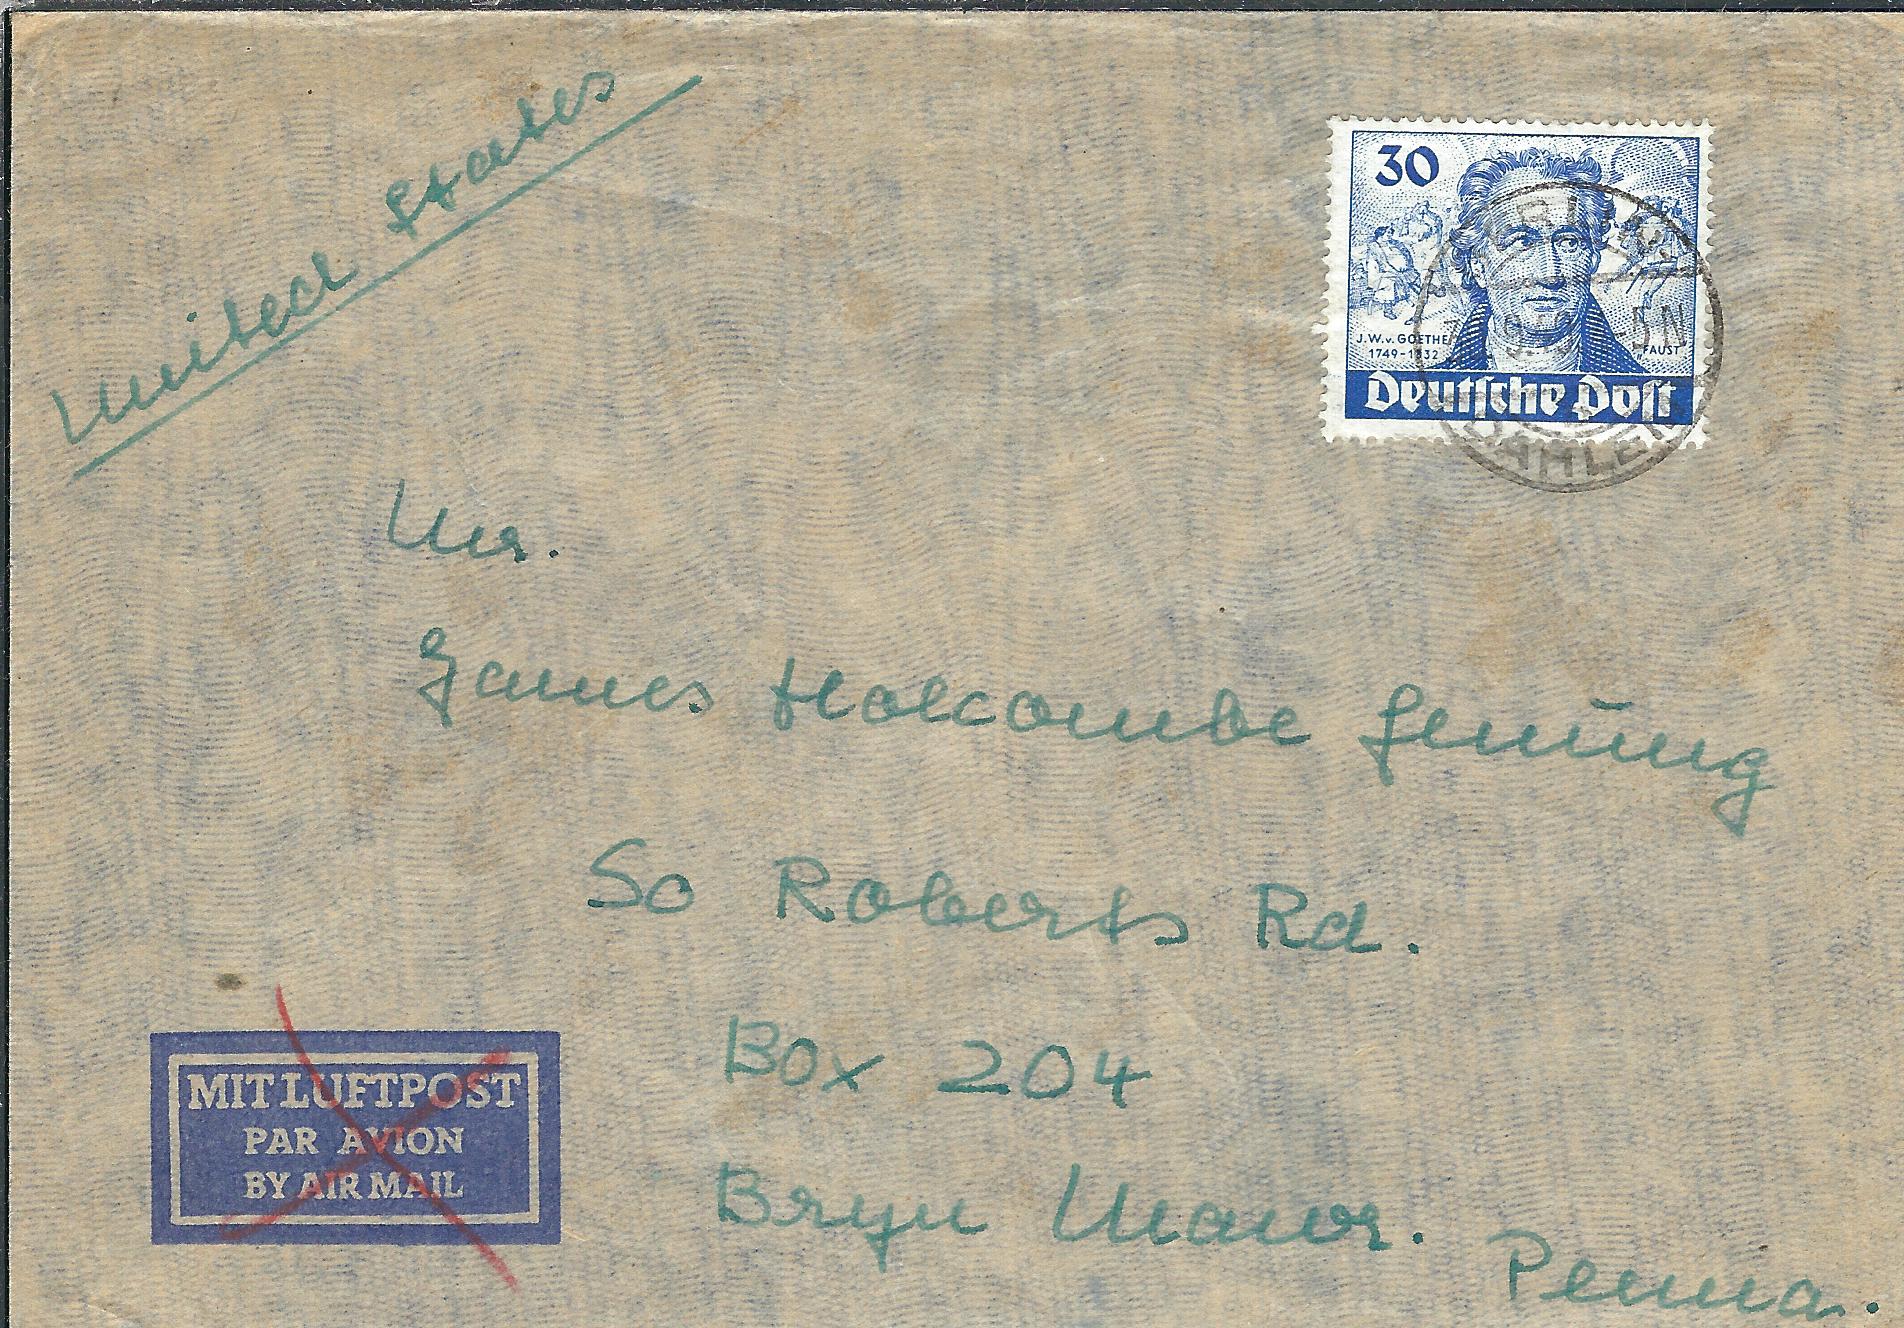 United States
30
J.W.v. GOETHE
1749-1832
FAUST
Deutsche Post
BERLIN
5N
DAHLEM
Mr.
James Holcombe Genung
So Roberts Rd.
Box 204
Bryn Mawr. Penna.
MIT LUFTPOST
PAR AVION
BY AIR MAIL